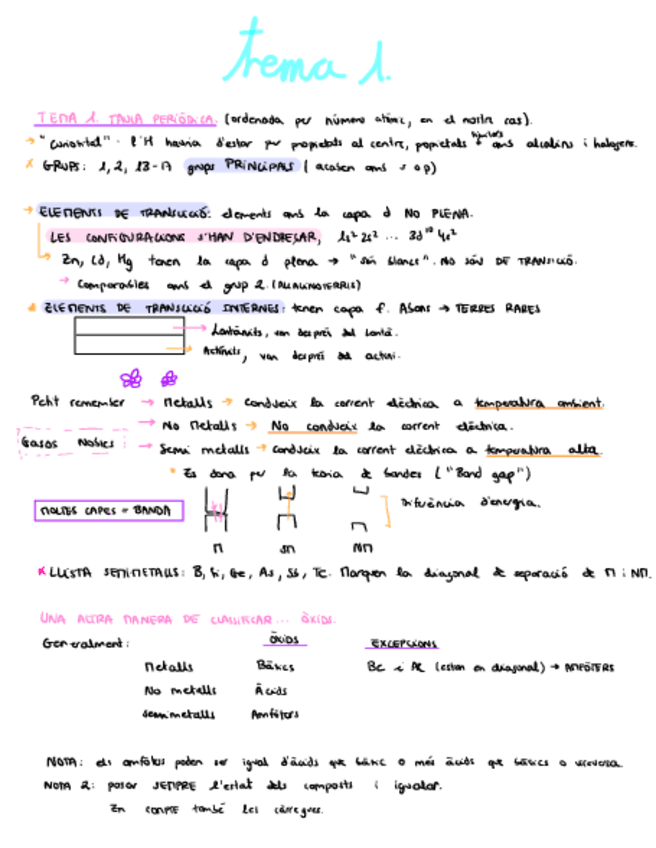 tema 1.
TEMA 1. TAULA PERIÒDICA. (ordenada per número atòmic, en el nostre cas).
→ "curiositat". l'H hauria d'estar per propietats al centre, propietats híbrides amb alcalins i halògens.
GRUPS: 1, 2, 13-17 grups PRINCIPALS (acaben amb s o p)
→ ELEMENTS DE TRANSICIÓ: elements amb la capa d NO PLENA.
LES CONFIGURACIONS S'HAN D'ENDREÇAR, 1s² 2s² ... 3d¹⁰ 4s²
Zn, Cd, Hg tenen la capa d plena → "són blancs". NO SÓN DE TRANSICIÓ.
→ Comparables amb el grup 2. (ALCALINOTERRIS)
ELEMENTS DE TRANSICIÓ INTERNES: tenen capa f. Abans → TERRES RARES
→ Lantànits, van després del lantà.
→ Actínits, van després del actini.
Petit remember → Metalls → Condueix la corrent elèctrica a temperatura ambient.
→ No Metalls → No condueix la corrent elèctrica.
Gasos Nobles
→ Semi metalls → condueix la corrent elèctrica a temperatura alta.
Es dona per la teoria de bandes ("Band gap")
MOLTES CAPES = BANDA
Diferència d'energia.
M SM NM
LLISTA SEMIMETALLS: B, Si, Ge, As, Sb, Te. Marquen la diagonal de separació de M i NM.
UNA ALTRA MANERA DE CLASSIFICAR... ÒXIDS.
Generalment: ÒXIDS EXCEPCIONS
Metalls Bàsics Be i Al (estan en diagonal) → AMFÒTERS
No metalls Àcids
Semimetalls Amfòters
NOTA: els amfòters poden ser igual d'àcids que bàsic o més àcids que bàsics o viceversa.
NOTA 2: posar SEMPRE l'estat dels composts i igualar.
En compte també les càrregues.